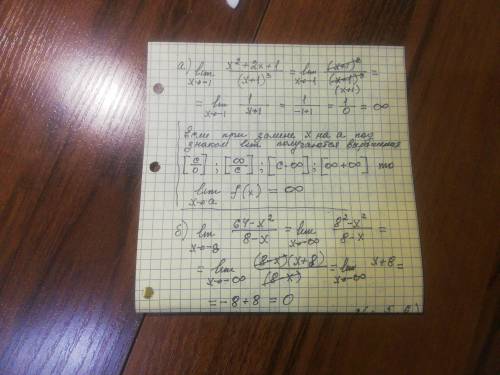 а) lim x→-1 (x²+2x+1)/(x+1)³ = lim x→-1 (x+1)²/(x+1)³ (x+1) =
= lim x→-1 1/(x+1) = 1/(-1+1) = 1/0 = ∞
Если при замене x на a под
знаком lim получаются выражения
[c/0] ; [∞/c] ; [c+∞] ; [∞+∞] то
lim x→a f(x) = ∞
б) lim x→-8 (64-x²)/(8-x) = lim x→-∞ (8²-x²)/(8-x) =
= lim x→-∞ (8-x)(x+8)/(8-x) = lim x→-∞ x+8 =
= -8+8 = 0